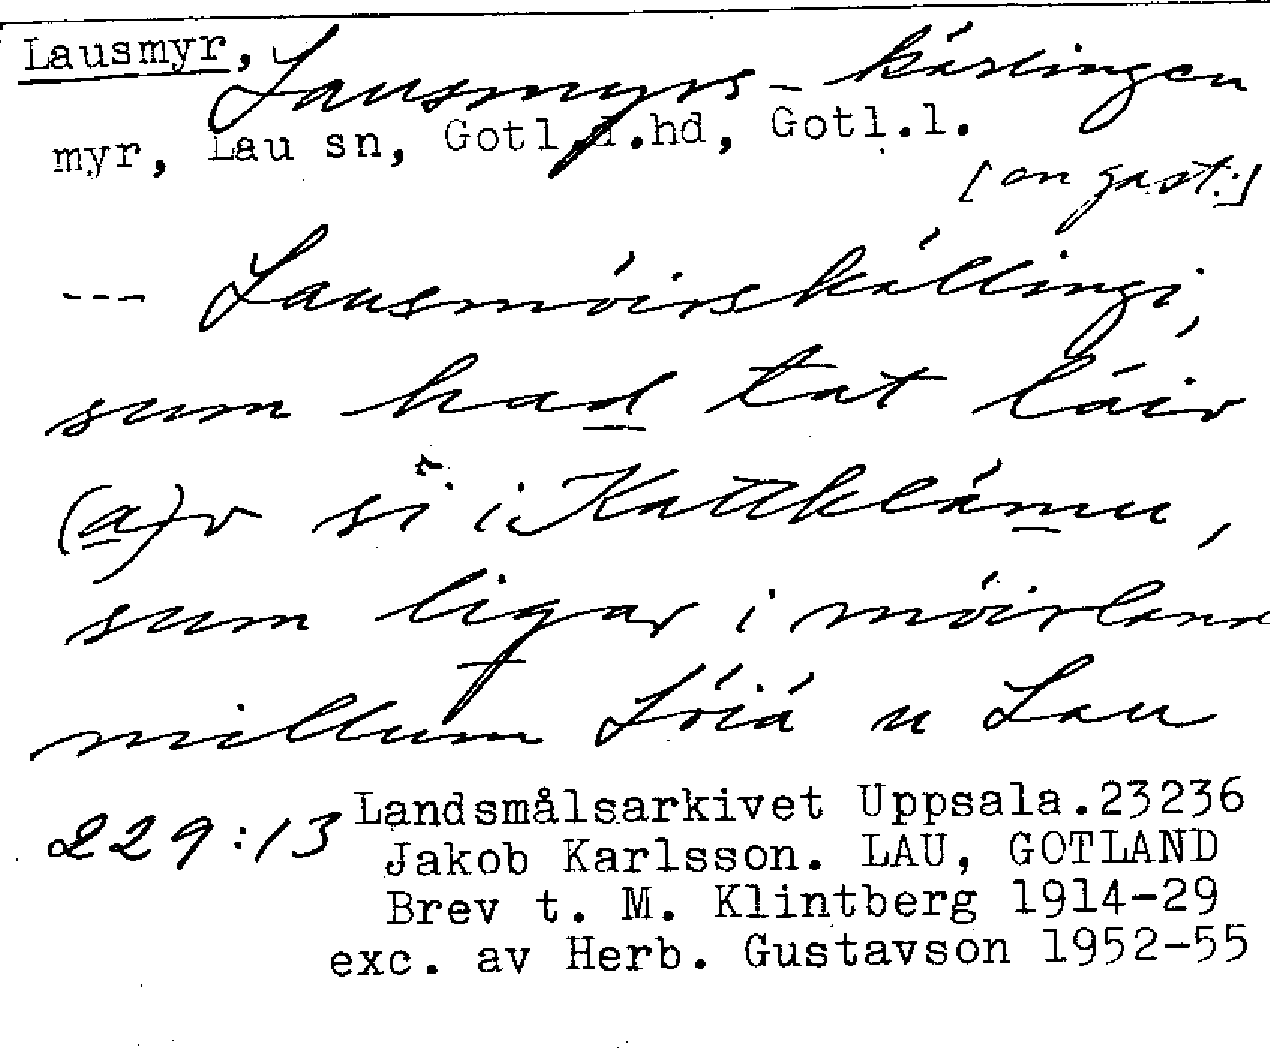 Lausmyr, Lausmyrs-kärlingen
myr, Lau sn, Gotl.d.hd, Gotl.l.
[en gast:]
--- Lausmóirskállingi,
sum had tat láiv
(a)v si i Kattklámu,
sum ligar i móirlana
millum Lóiá u Lau
229:13 Landsmålsarkivet Uppsala.23236
Jakob Karlsson. LAU, GOTLAND
Brev t. M. Klintberg 1914-29
exc. av Herb. Gustavson 1952-55